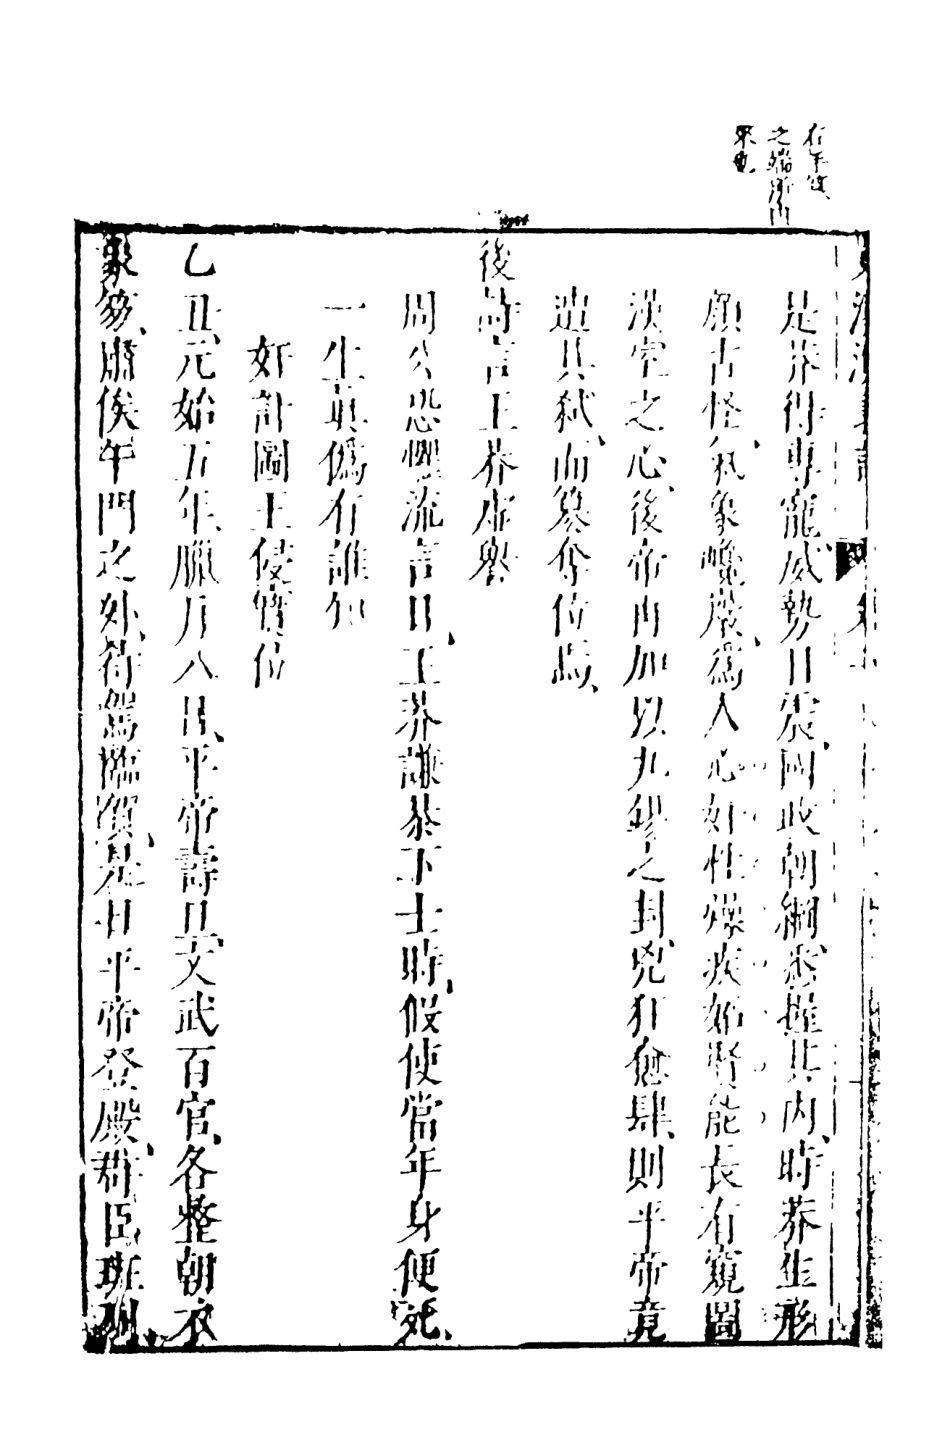 之端所由
是莽得專寵威勢日震國政朝綱悉握其内時莽生形
顏古怪氣象巉巖爲人心奸性燥疾妬賢能長有窺圖
漢室之心後帝再加以九錫之封兇狂愈肆則平帝竟
遭其弑而篡奪位焉
後詩言王莽虚譽
周公恐懼流言日王莽謙恭下士時假使當年身便死
一生眞僞有誰知
奸計圖王侵寶位
乙丑元始五年臘月八日平帝壽旦文武百官各整朝衣
象笏肅俟午門之外待駕臨賀是日平帝登殿群臣班列